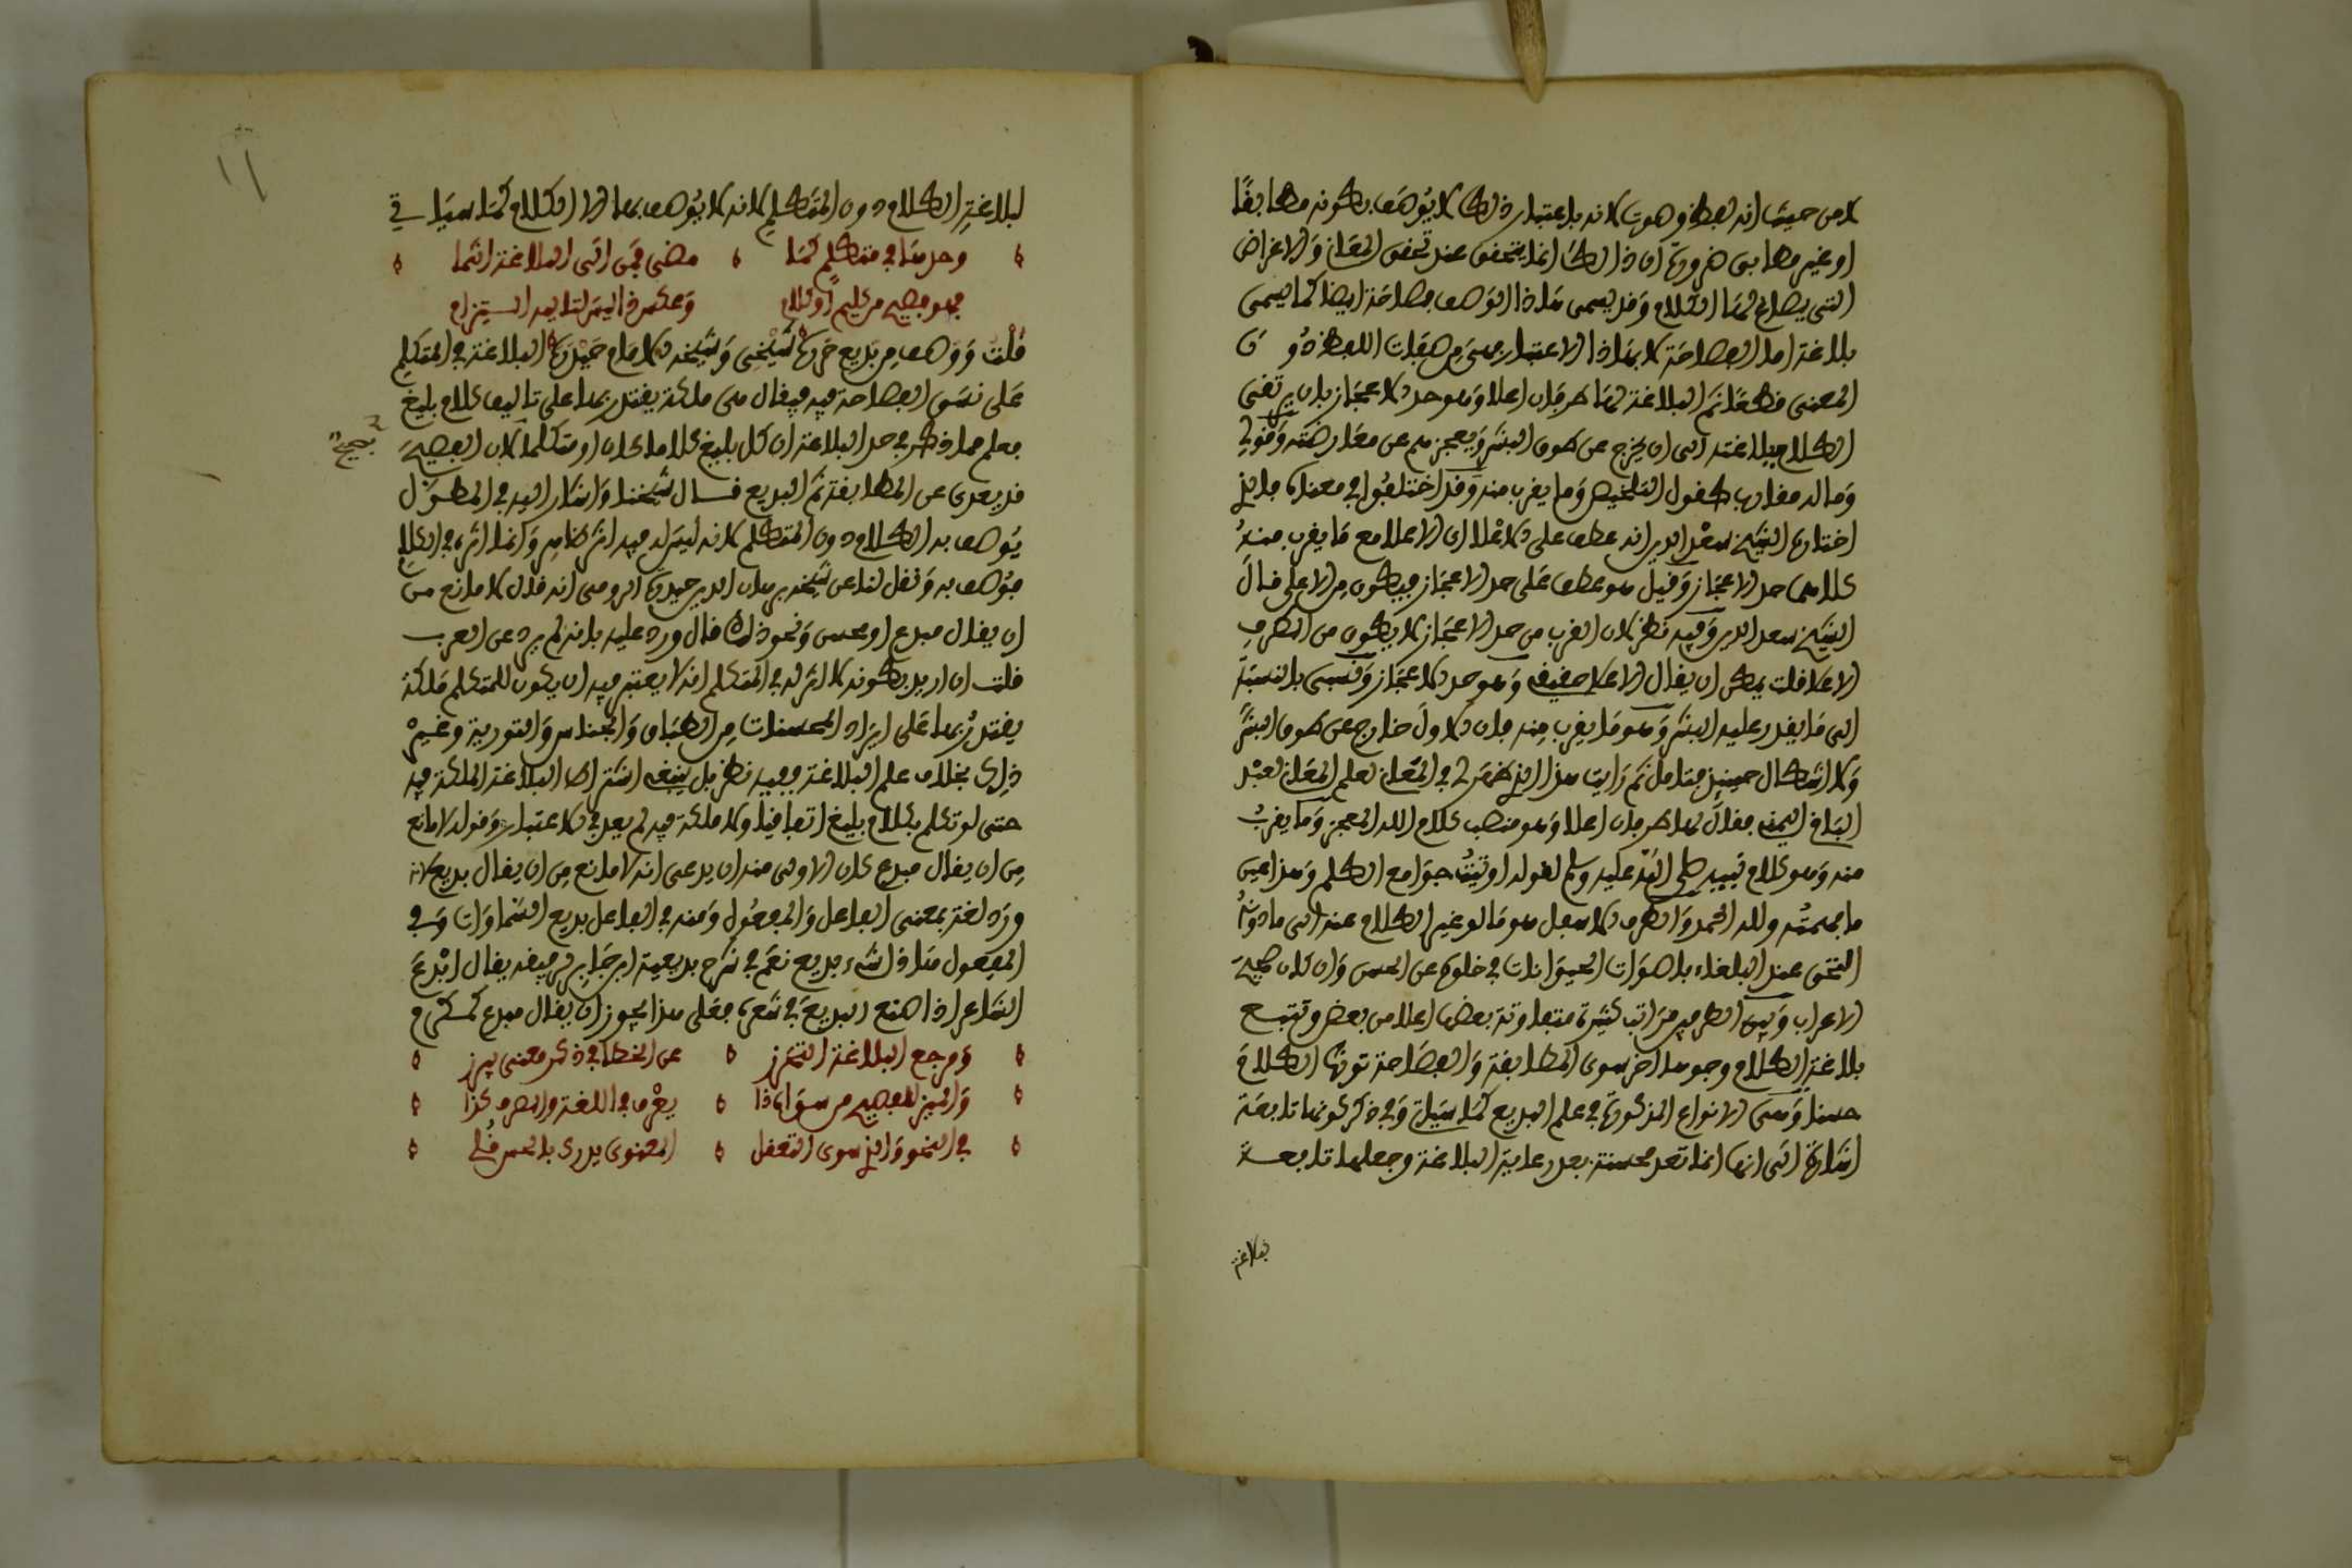 لا من حيث انه لفظ وصوت لانه باعتبار ذلك لا يوصف بكونه مطابقا
او غير مطابق ضرورة ان ذلك انما يتحقق عند تحقق المعاني والاغراض
التي يصاغ لها الكلام وقد يسمى هذا الوصف فصاحة ايضا كما يسمى
بلاغة اما الفصاحة لا بهذا الاعتبار فهي من صفات اللفظ دون
المعنى قطعا ثم البلاغة لها طرفان اعلا وهو حد الاعجاز بان يرتقي
الكلام ببلاغته الى ان يخرج عن طوق البشر ويعجزهم عن معارضته وقولي
وما له مقارب كقول التلخيص وما يقرب منه وقد اختلفوا في معناه فالذي
اختاره الشيخ سعد الدين انه عطف على الاعلا اي الاعلا مع ما يقرب منه
كلاهما حد الاعجاز وقيل هو عطف على حد الاعجاز فيكون من الاعلى قال
الشيخ سعد الدين وفيه نظر لان القرب من حد الاعجاز لا يكون من الطرف
الاعلا قلت يمكن ان يقال الاعلا حقيقي وهو حد الاعجاز ونسبي بالنسبة
الى ما يقدر عليه البشر وهو ما يقرب منه فان الاول خارج عن طوق البشر
ولا اشكال حينئذ فتامل ثم رايت هذا الذي ظهر لي في المعان لعلم المعان لعبد
الباقي اليمني فقال لها طرفان اعلا وهو منصب كلام الله المعجز وما يقرب
منه وهو كلام نبيه صلى الله عليه وسلم لقوله اوتيت جوامع الكلم وهذا عين
ما فهمته ولله الحمد والطرف الاسفل هو ما لو غير الكلام عنه الى ما دونه
التحق عند البلغاء باصوات الحيوانات في خلوه عن الحسن وان كان صحيح
الاعراب وبين الطرفين مراتب كثيرة متفاوتة بعضها اعلا من بعض وتتبع
بلاغة الكلام وجوه اخر سوى المطابقة والفصاحة تورث الكلام
حسنا وهي الانواع المذكورة في علم البديع كما سياتي وفي ذكر كونها تابعة
اشارة الى انها انما تعد محسنة بعد رعاية البلاغة وجعلها تابعة
لبلاغة
١١
لبلاغة الكلام دون المتكلم لانه لا يوصف بها الا الكلام كما سياتي
وحدها في متكلم كما مضى فمن الى البلاغة انتما
فهو فصيح من كليم او كلام وعكس ذا ليس يناله التزام
قلت ووصف من بديع حرره شيخي وشيخه الامام حيدره البلاغة في المتكلم
على نسق الفصاحة فيه فيقال هي ملكة يقتدر بها على تاليف كلام بليغ
فعلم مما ذكر في حد البلاغة ان كل بليغ كلاما كان او متكلما لان الفصيح
فصيح
قد يعرى عن المطابقة ثم البديع قال شيخنا واشار اليه في المطول
يوصف به الكلام دون المتكلم لانه ليس له فيه اثر ظاهر وانما اثره في الكلام
فوصف به ونقل لنا عن شيخه برهان الدين حيدرة الرومي انه قال لا مانع من
ان يقال مبدع او محسن ونحو ذلك قال ورد عليه بانه لم يرد عن العرب
قلت ان اريد بكونه لا اثر له في المتكلم انه لا يعتبر فيه ان يكون للمتكلم ملكة
يقتدر بها على ايراد المحسنات من الطباق والجناس والتورية وغير
ذلك بخلاف علم البلاغة ففيه نظر بل ينبغي اشتراط البلاغة الملكة فيه
حتى لو تكلم بكلام بليغ اتفاقيا ولا ملكة فيه لم يعد في الاعتبار وقوله لا مانع
من ان يقال مبدع كان الاولى منه ان يدعى انه لا مانع من ان يقال بديع لانه
ورد لغة بمعنى الفاعل والمفعول ومنه في الفاعل بديع السماوات وفي
المفعول هذا شيء بديع نعم في شرح بديعية ابن جابر لرفيقه يقال ابدع
الشاعر اذا صنع البديع في شعره فعلى هذا يجوز ان يقال مبدع كمكرم
ومرجع البلاغة التحرز عن الخطا في ذكر معنى يبرز
والميز للفصيح من سواه ذا يعرف في اللغة والصرف كذا
في النحو والذي سوى التعقد المعنوي يدرى بالحس قد